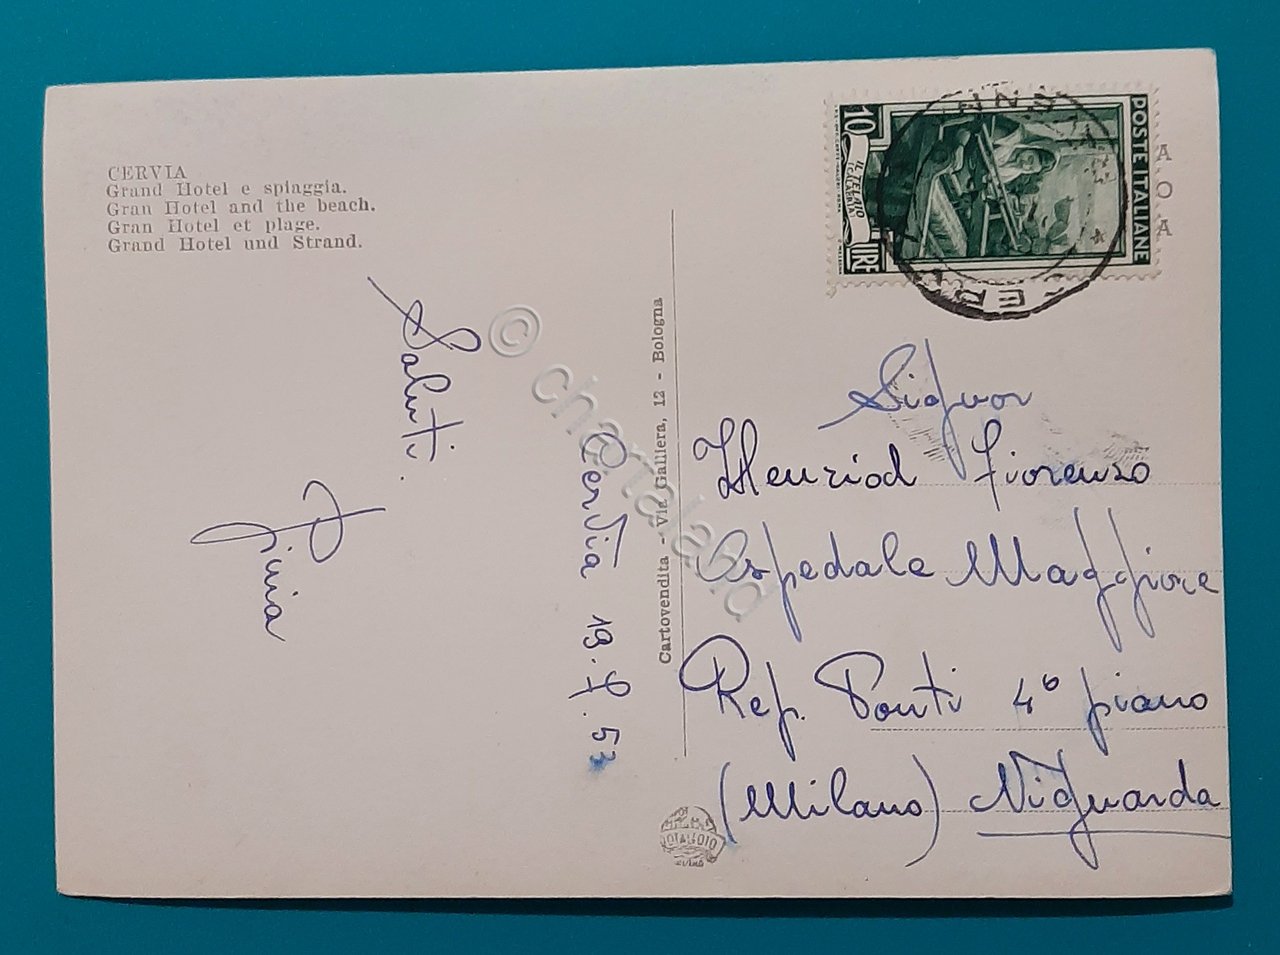 CERVIA
Grand Hotel e spiaggia.
Gran Hotel and the beach.
Gran Hotel et plage.
Grand Hotel und Strand.
Saluti.
Pinia
Cervia 19.7.53
Cartovendita - Via Galliera, 12 - Bologna
© chartaland
POSTE ITALIANE
10 LIRE
IL TELAIO
(CALABRIA)
A
O
A
Signor
Henriod Fiorenzo
Ospedale Maggiore
Rep. Ponti 4° piano
(Milano) Niguarda